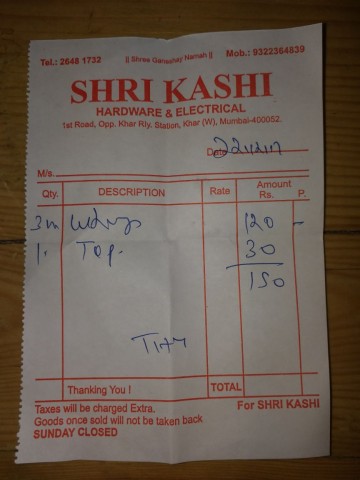 Tel.: 2648 1732 || Shree Ganeshay Namah || Mob.: 9322364839
SHRI KASHI
HARDWARE & ELECTRICAL
1st Road, Opp. Khar Rly. Station, Khar (W), Mumbai-400052.
Date
M/s.
Qty. DESCRIPTION Rate Amount Rs. P.
3m 120 -
1. Top. 30
150
Thanking You ! TOTAL
Taxes will be charged Extra. For SHRI KASHI
Goods once sold will not be taken back
SUNDAY CLOSED